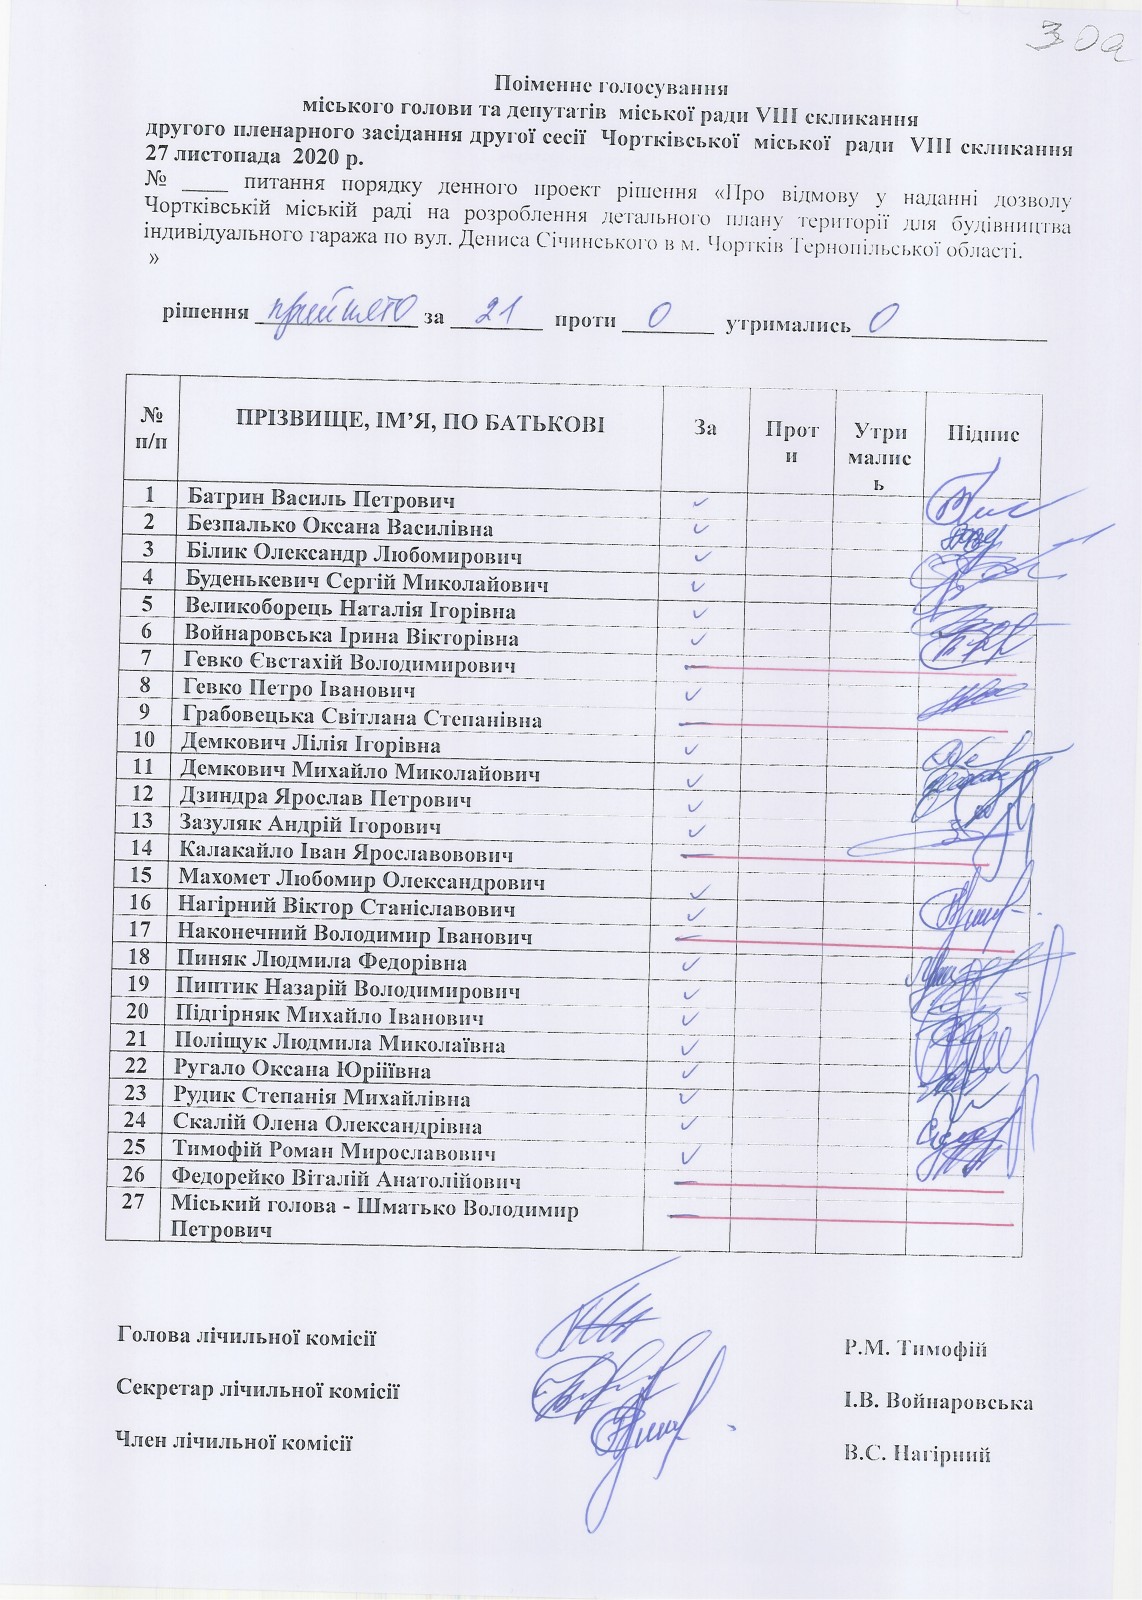 30а
Поіменне голосування
міського голови та депутатів міської ради VIII скликання
другого пленарного засідання другої сесії Чортківської міської ради VIII скликання
27 листопада 2020 р.
№ ____ питання порядку денного проект рішення «Про відмову у наданні дозволу
Чортківській міській раді на розроблення детального плану території для будівництва
індивідуального гаража по вул. Дениса Січинського в м. Чортків Тернопільської області.
»
рішення прийнято за 21 проти 0 утримались 0
№ п/п ПРІЗВИЩЕ, ІМ’Я, ПО БАТЬКОВІ За Проти Утрималисьь Підпис
1 Батрин Василь Петрович
2 Безпалько Оксана Василівна
3 Білик Олександр Любомирович
4 Буденькевич Сергій Миколайович
5 Великоборець Наталія Ігорівна
6 Войнаровська Ірина Вікторівна
7 Гевко Євстахій Володимирович
8 Гевко Петро Іванович
9 Грабовецька Світлана Степанівна
10 Демкович Лілія Ігорівна
11 Демкович Михайло Миколайович
12 Дзиндра Ярослав Петрович
13 Зазуляк Андрій Ігорович
14 Калакайло Іван Ярославовович
15 Махомет Любомир Олександрович
16 Нагірний Віктор Станіславович
17 Наконечний Володимир Іванович
18 Пиняк Людмила Федорівна
19 Пиптик Назарій Володимирович
20 Підгірняк Михайло Іванович
21 Поліщук Людмила Миколаївна
22 Ругало Оксана Юріїївна
23 Рудик Степанія Михайлівна
24 Скалій Олена Олександрівна
25 Тимофій Роман Мирославович
26 Федорейко Віталій Анатолійович
27 Міський голова - Шматько Володимир
Петрович
Голова лічильної комісії Р.М. Тимофій
Секретар лічильної комісії І.В. Войнаровська
Член лічильної комісії В.С. Нагірний